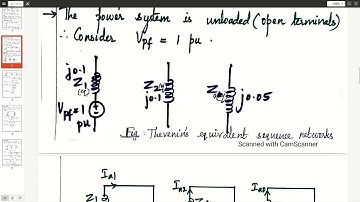 → The power system is unloaded (open terminals)
∴ Consider Vpf = 1 pu.
j0.1
Z1
Z2
j0.1
j0.05
Vpf=1
pu
Fig: Thevenin's equivalent sequence networks
Scanned with CamScanner
Ia1
Ia2
Ia0
Z1